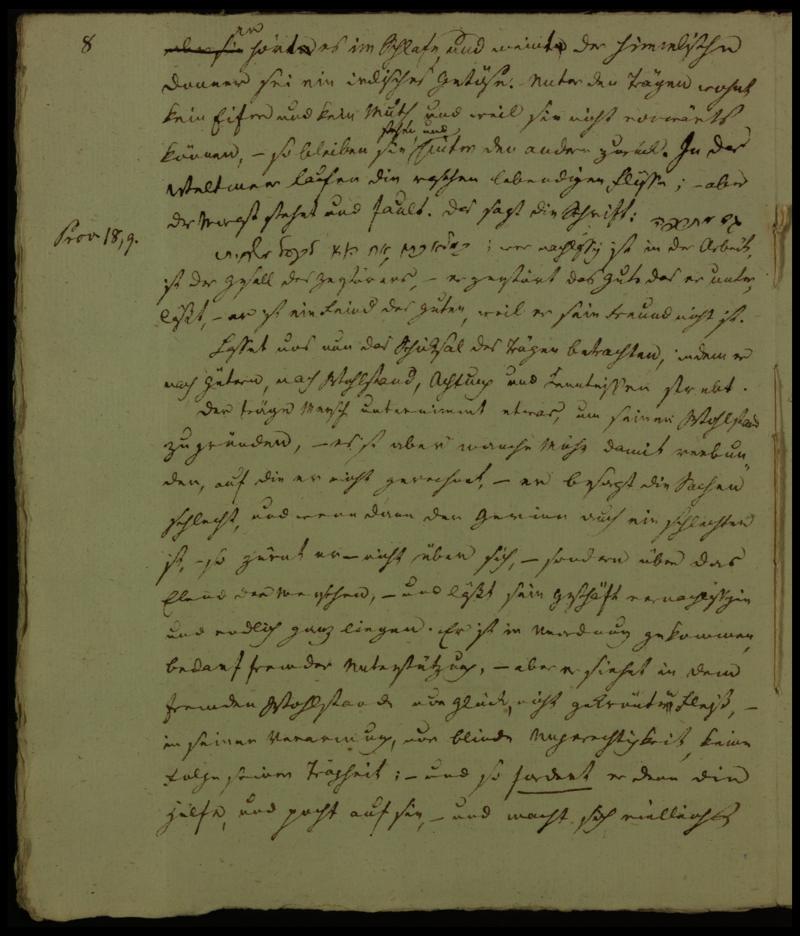 8
er
aber sie hörte es im Schlafe, und meinte der himmlische
Donner sei ein irdisches Getöse. Unter den Trägen wohnt
kein Eifer und kein Muth, und weil sie nicht vorwärts
stehen, und
können, – so bleiben sie hinter den andern zurück. In das
Weltmeer laufen die raschen lebendigen Flüsse; – aber
der Morast stehet und fault. Das sagt die Schrift: גם מתרפה
Prov 18,9.
במלאכתו אח הוא לבעל משחית ; wer nachlässig ist in der Arbeit,
ist der Gesell des Zerstörers, – er zerstört das Gute das er unter
läßt, – er ist ein Feind des Guten, weil er sein Freund nicht ist.
Lasset uns nun das Schicksal des Trägen betrachten, indem er
nach Gütern, nach Wohlstand, Achtung und Kenntnissen strebt.
Der träge Mensch unternimmt etwas, um seinen Wohlstand
zu gründen, – es ist aber manche Mühe damit verbun
den, auf die er nicht gerechnet, – er besorgt die Sachen
schlecht, und wenn dann der Gewinn auch ein schlechter
ist, – so zürnt er – nicht über sich, – sondern über das
Elend der Menschen, – und läßt sein Geschäft vernachlässigen
und endlich ganz liegen. Er ist in Unordnung gekommen,
bedarf fremder Unterstützung, – aber er siehet in dem
fremden Wohlstande nur Glück, nicht gekrönten Fleiß, –
in seiner Verarmung, nur blinde Ungerechtigkeit, keine
Folge seiner Trägheit; – und so fordert er denn die
Hilfe, und pocht auf sie, – und macht sich vielleicht